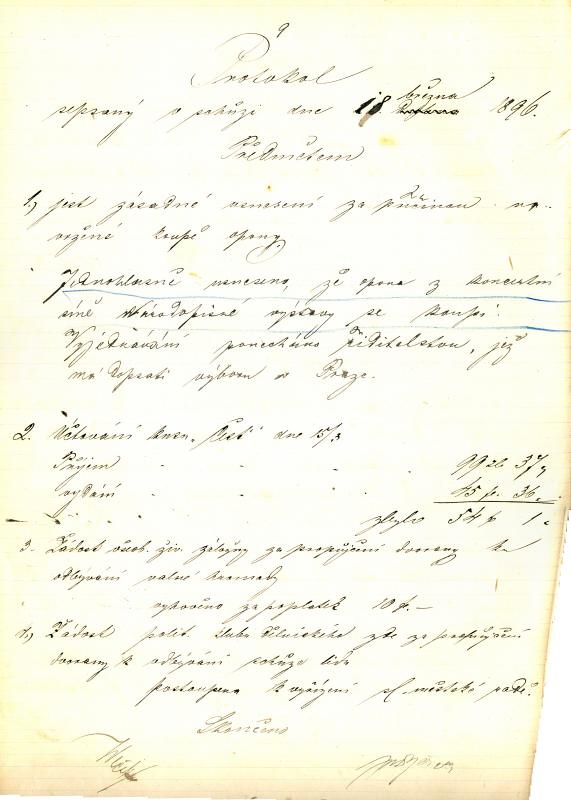 9
Protokol
sepsaný v schůzi dne 18. března 1896.
Předmětem
1.) jest zásadné usnesení za příčinou na-
vržené koupě opony
Jednohlasně usneseno, že opona z koncertní
síně Národopisné výstavy se koupí.
Vyjednávání ponecháno ředitelstvu, jež
má dopsati výboru v Praze.
2. Účtování dne 15/3
Příjem . . . . 99 zl 37
vydání . . . . 45 zl. 36
zbylo 54 1
3. Žádost občan. živ. záložny za propůjčení dvorany k
odbývání valné hromady
vyhověno za poplatek 10 f. –
4.) Žádost polit. klubu dělnického zde za propůjčení
dvorany k odbývání schůze lidu
postoupena k vyřízení sl. městské radě.
Skončeno